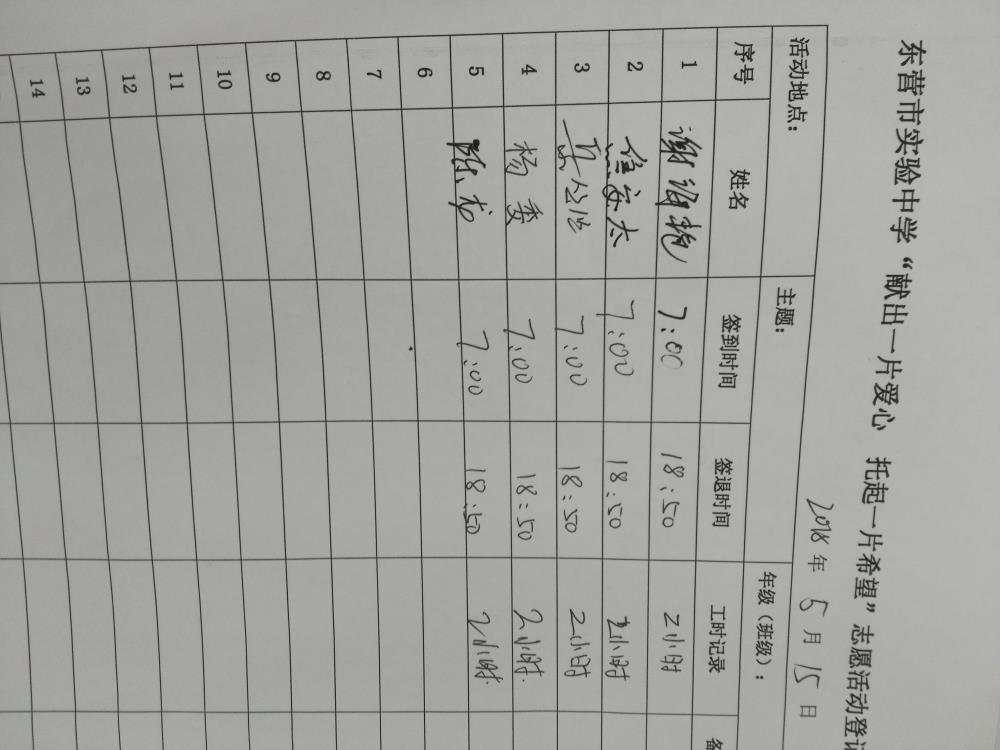 东营市实验中学“献出一片爱心 托起一片希望”志愿活动登记
2018 年 5 月 15 日
活动地点： 主题： 年级（班级）：
序号 姓名 签到时间 签退时间 工时记录 备
1 7:00 18:50 2小时
2 7:00 18:50 2小时
3 7:00 18:50 2小时
4 杨雯 7:00 18:50 2小时
5 陈龙 7:00 18:50 2小时.
6
7
8
9
10
11
12
13
14